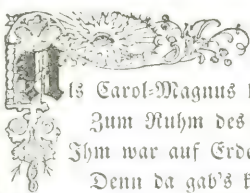 Als Carol-Magnus
Zum Ruhm des
Ihm war auf Erde
Denn da gab's k